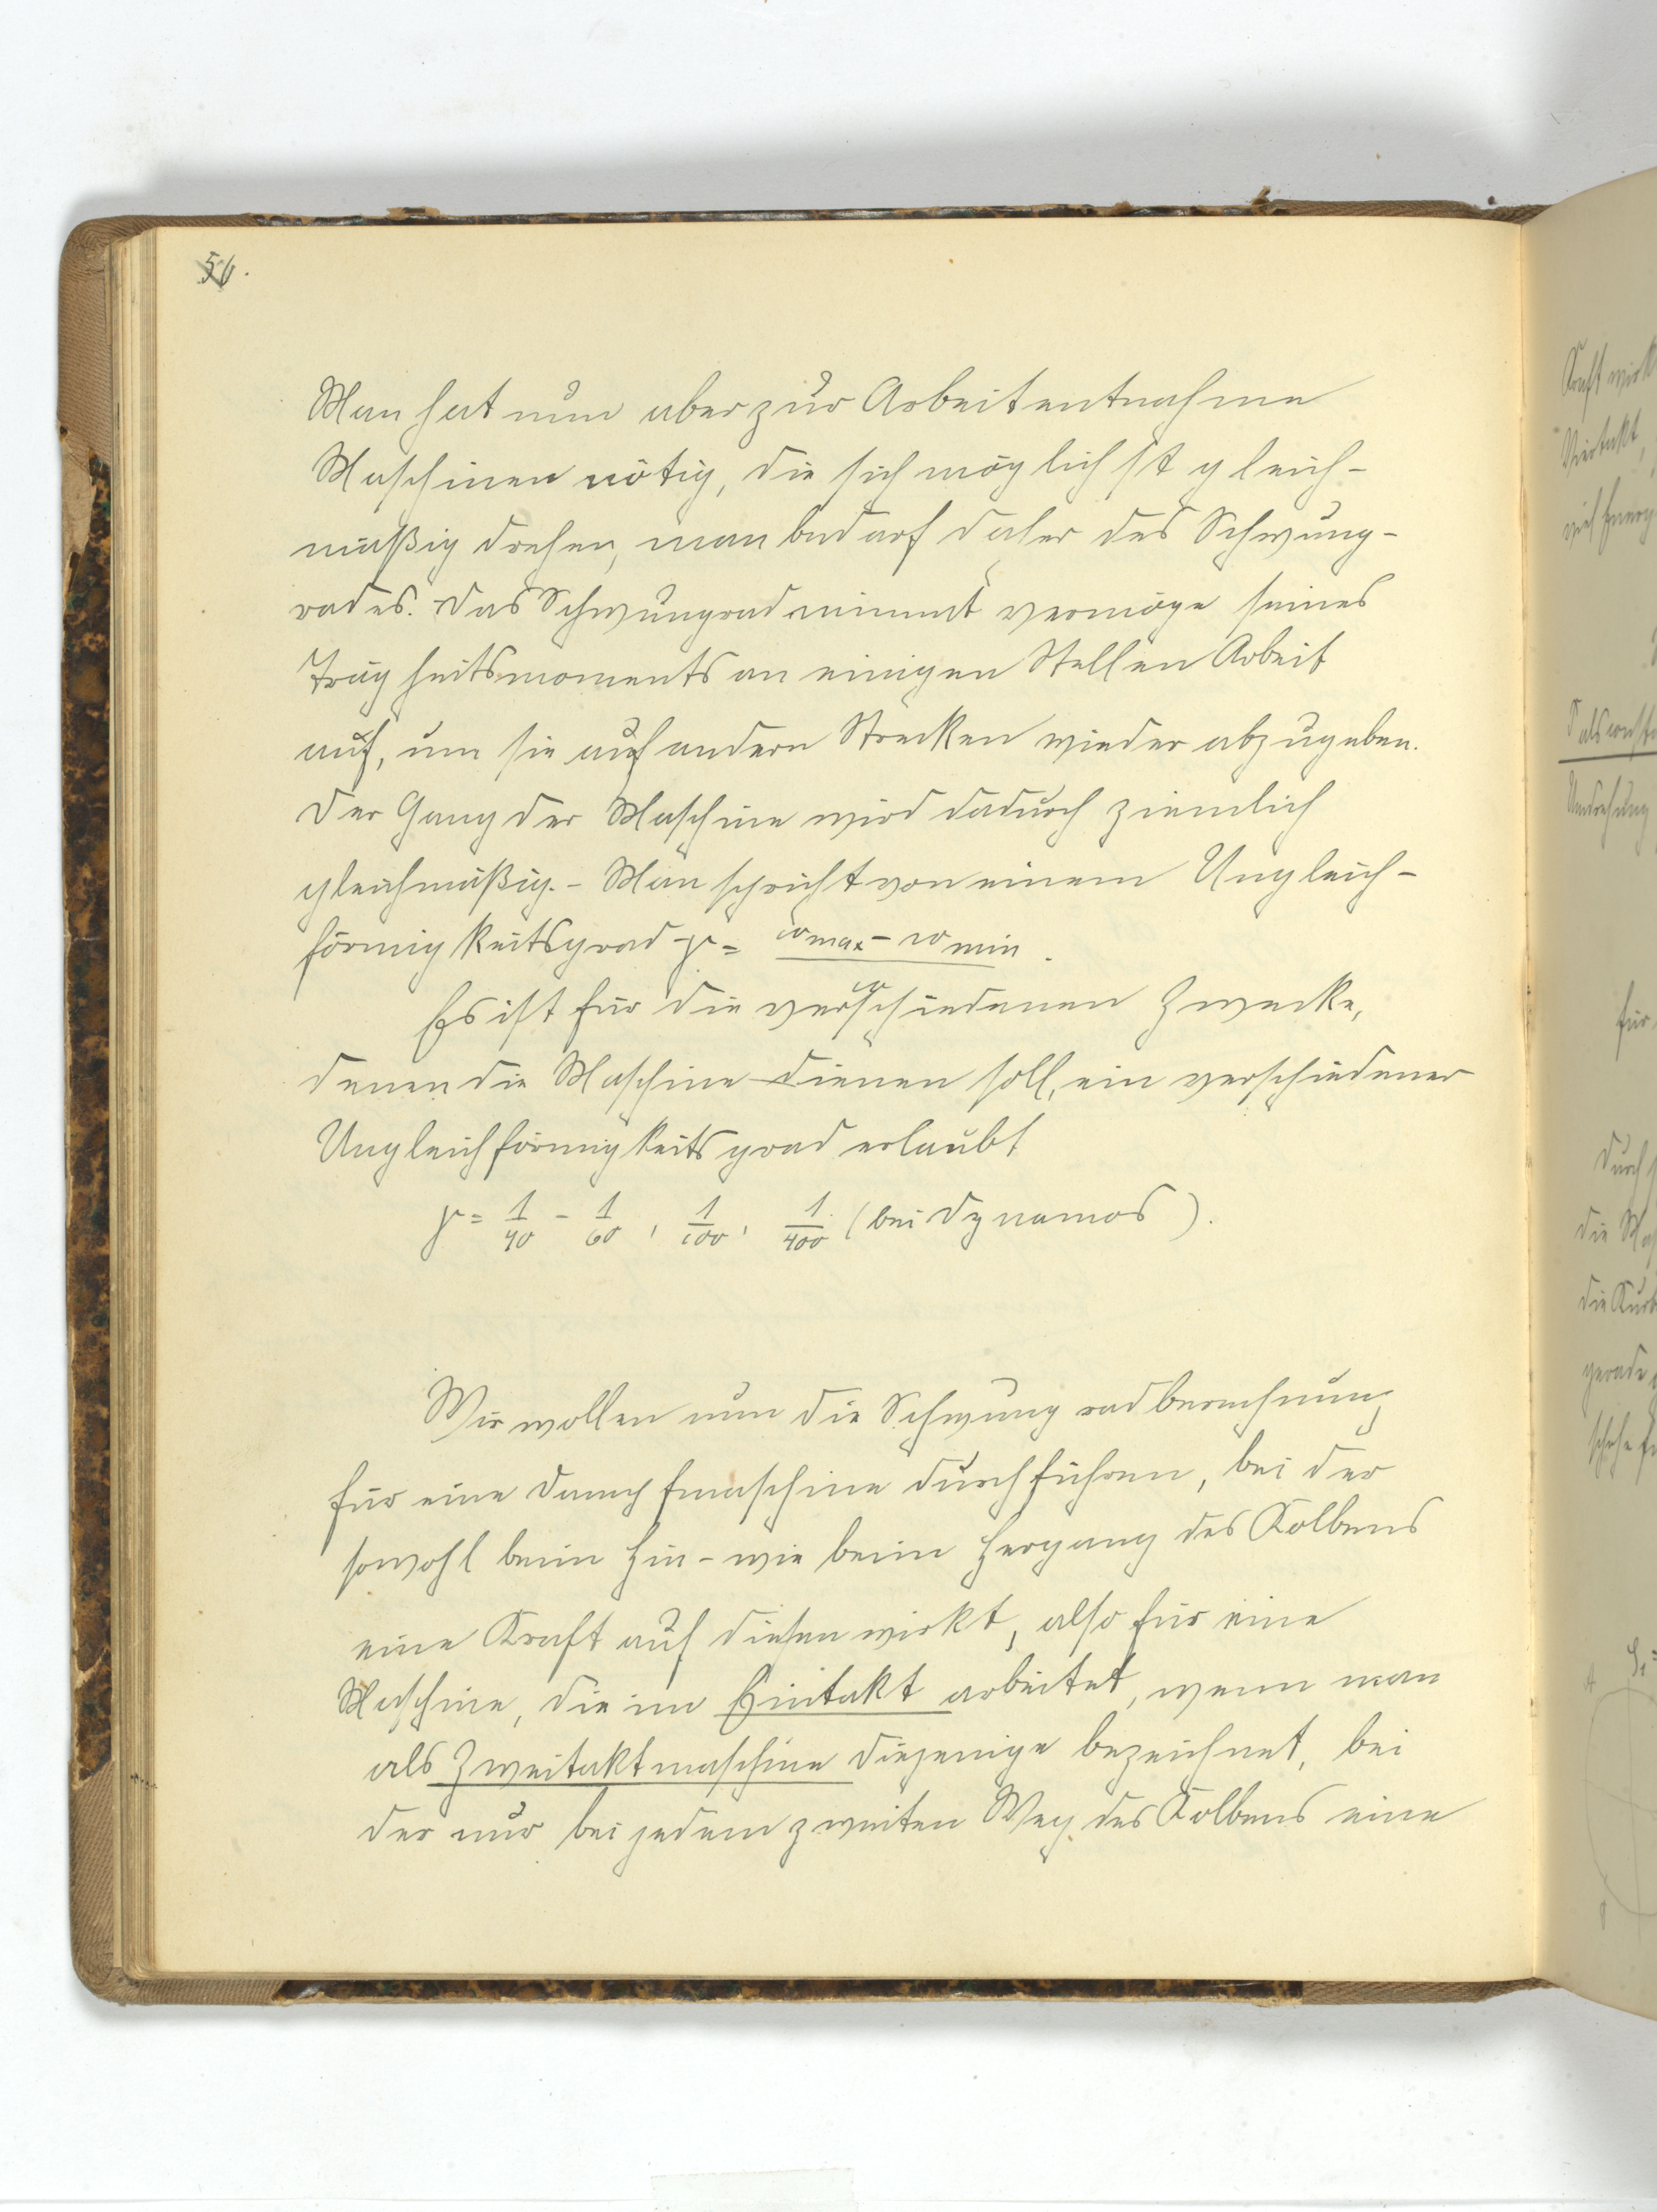 56.
Man hat nun aber zur Arbeitentnahme
Maschinen nötig, die sich möglichst gleich-
mäßig drehen, man bedarf daher des Schwung-
rades. Das Schwungrad nimmt vermöge seines
Trägheitsmoments an einigen Stellen Arbeit
auf, um sie auf andern Strecken wieder abzugeben.
Der Gang der Maschine wird dadurch ziemlich
gleichmäßig. - Man spricht von einem Ungleich-
förmigkeitsgrad γ = (w max - w min) / w.
Es ist für die verschiedenen Zwecke,
denen die Maschine dienen soll, ein verschiedener
Ungleichförmigkeitsgrad erlaubt
γ = 1/40 - 1/60, 1/100, 1/400 (bei Dynamos).
Wir wollen nun die Schwungradberechnung
für eine Dampfmaschine durchführen, bei der
sowohl beim Hin- wie beim Hergang des Kolbens
eine Kraft auf diesen wirkt, also für eine
Maschine, die im Eintakt arbeitet, wenn man
als Zweitaktmaschine diejenige bezeichnet, bei
der nur bei jedem zweiten Weg des Kolbens eine
Kraft wirkt
Viertakt,
für
durch
gerade